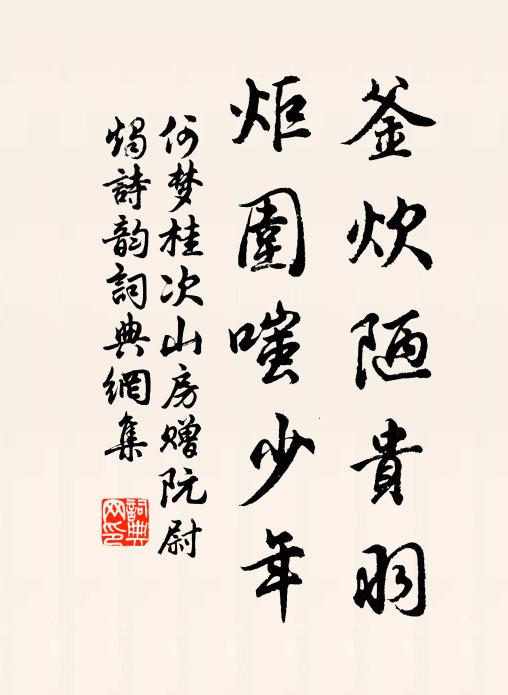 釜炊陋貴羽
炬圍嗤少年
何梦桂次山房赠阮尉
燭詩韵詞典網集
詞典
网印